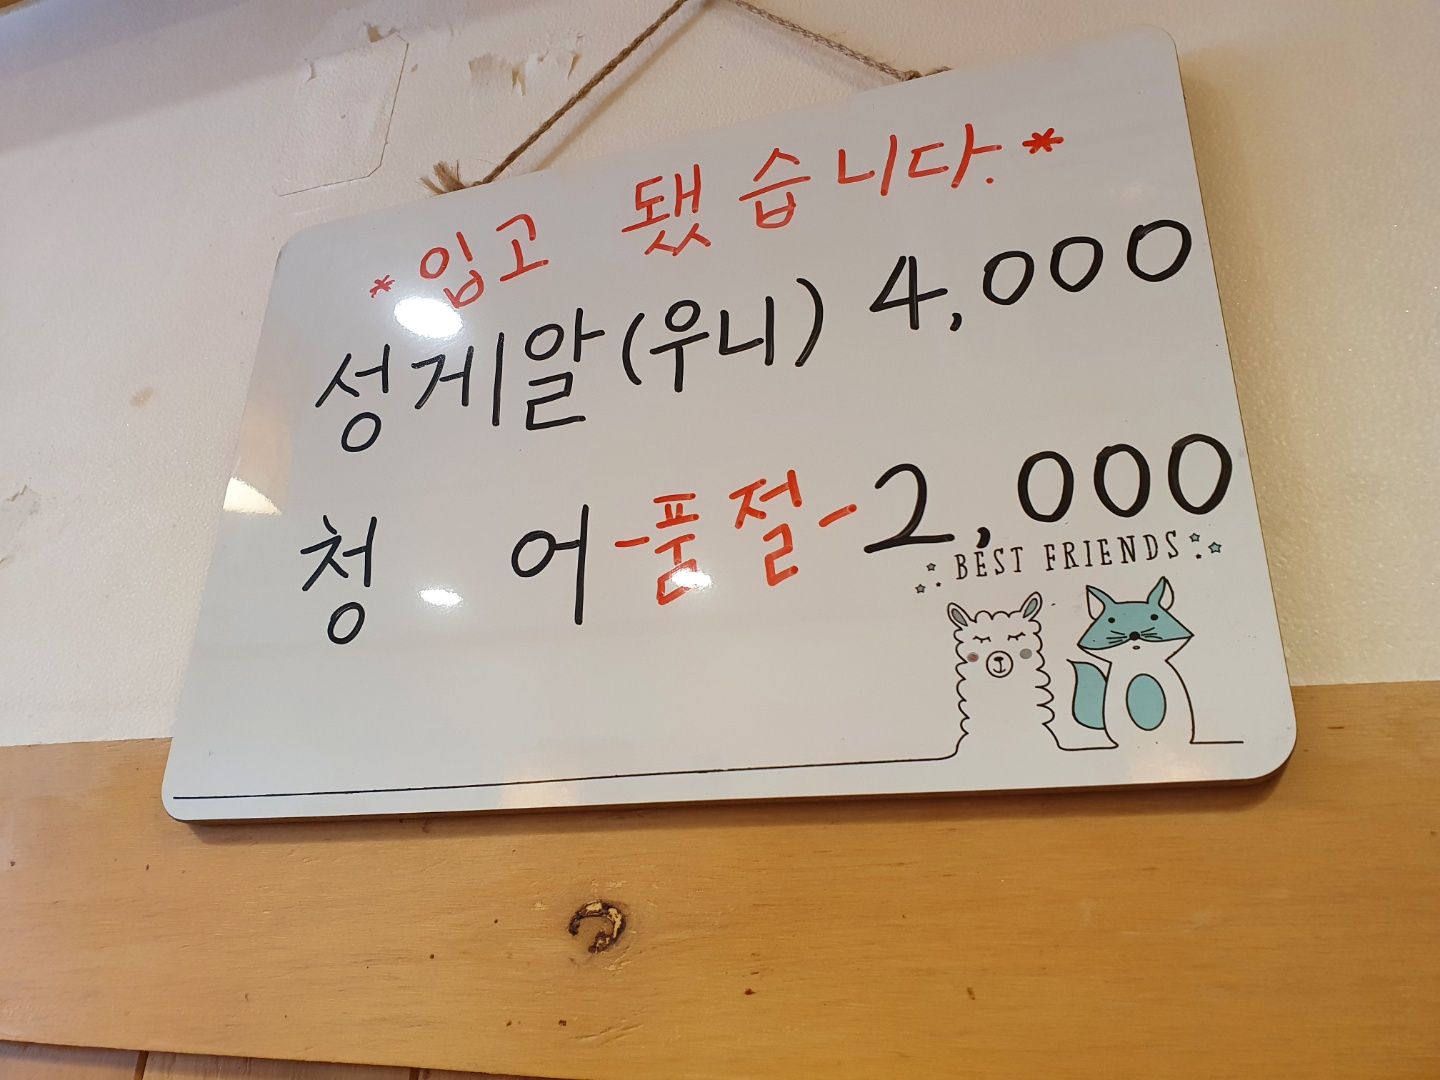 *입고 됐습니다.*
성게알(우니) 4,000
청 어 -품절- 2,000
BEST FRIENDS